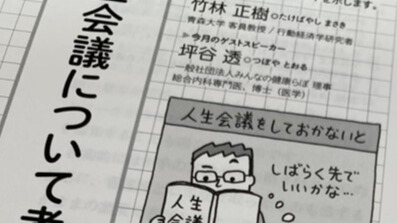 会議について考
示します。
竹林 正樹 ●たけばやし まさき
青森大学 客員教授 / 行動経済学研究者
>今月のゲストスピーカー
坪谷 透 ●つぼや とおる
一般社団法人みんなの健康らぼ 理事
総合内科専門医、博士（医学）
人生会議をしておかないと
しばらく先で
いいかな…
人生
会議